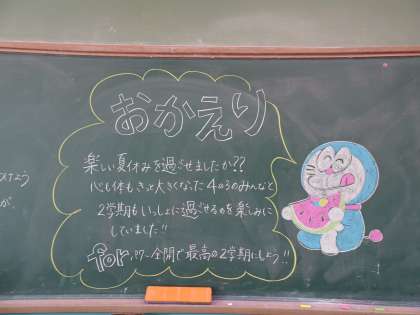 おかえり
楽しい夏休みを過ごせましたか??
心も体もきっと大きくなった4の3のみんなと
2学期もいっしょに過ごせるのを楽しみに
していました!!
for 全開で最高の2学期にしよう!!
が、